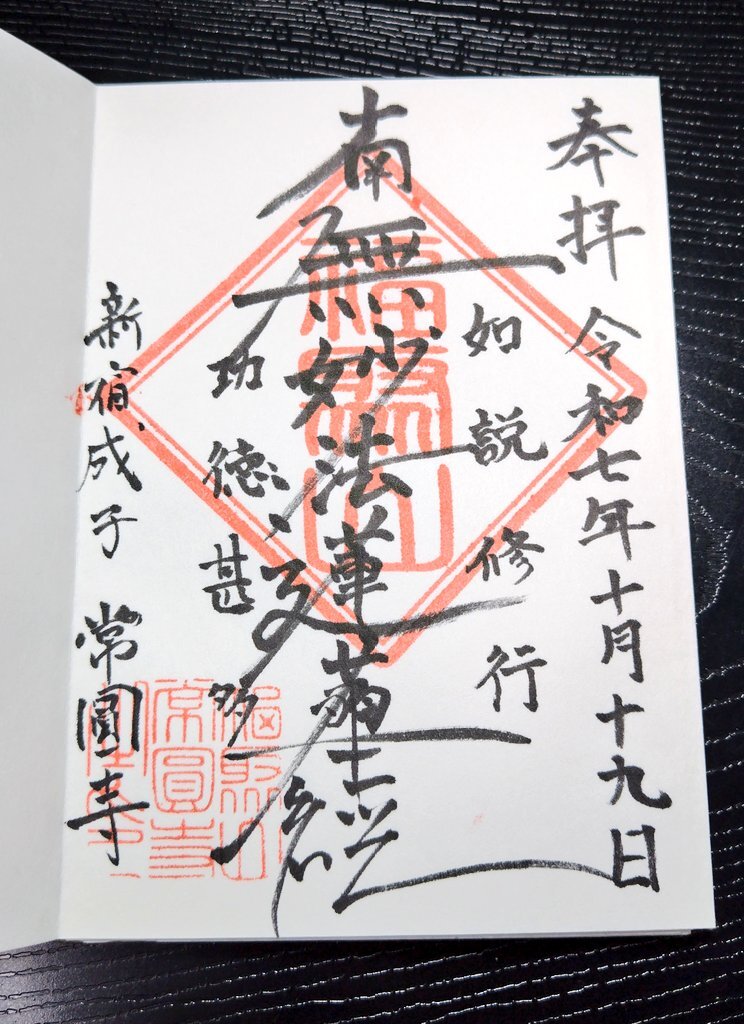 奉拝 令和七年十月十九日
如説修行
南無妙法蓮華経
功徳甚多
新宿成子 常圓寺
福聚山
福聚山
常圓寺